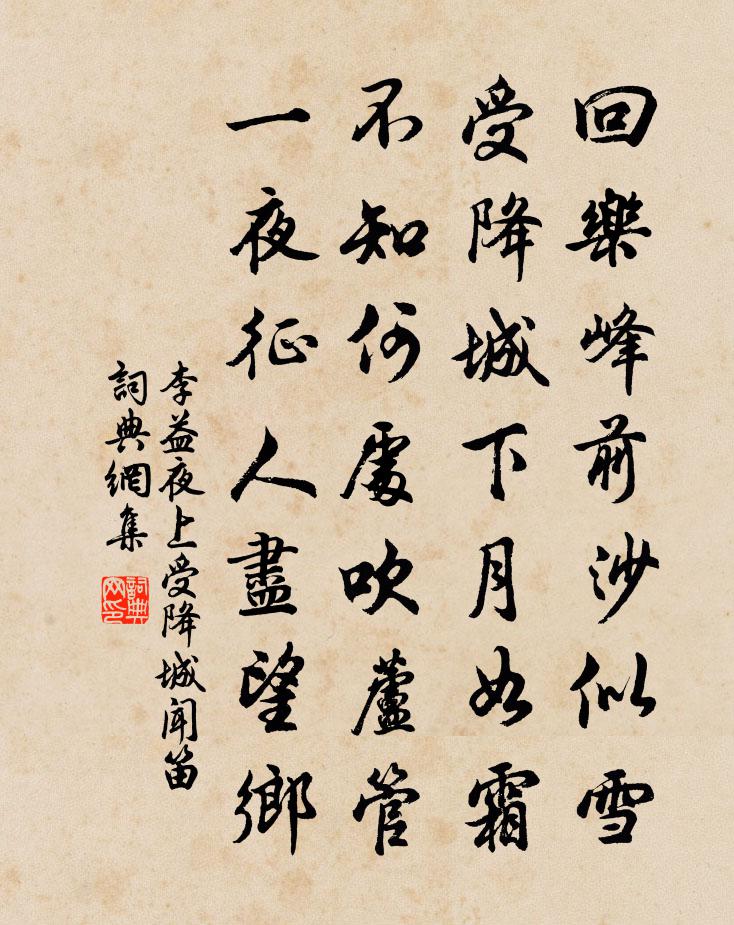 回樂峰前沙似雪
受降城下月如霜
不知何處吹蘆管
一夜征人盡望鄉
李益夜上受降城聞笛
詞典網集
詞典網印